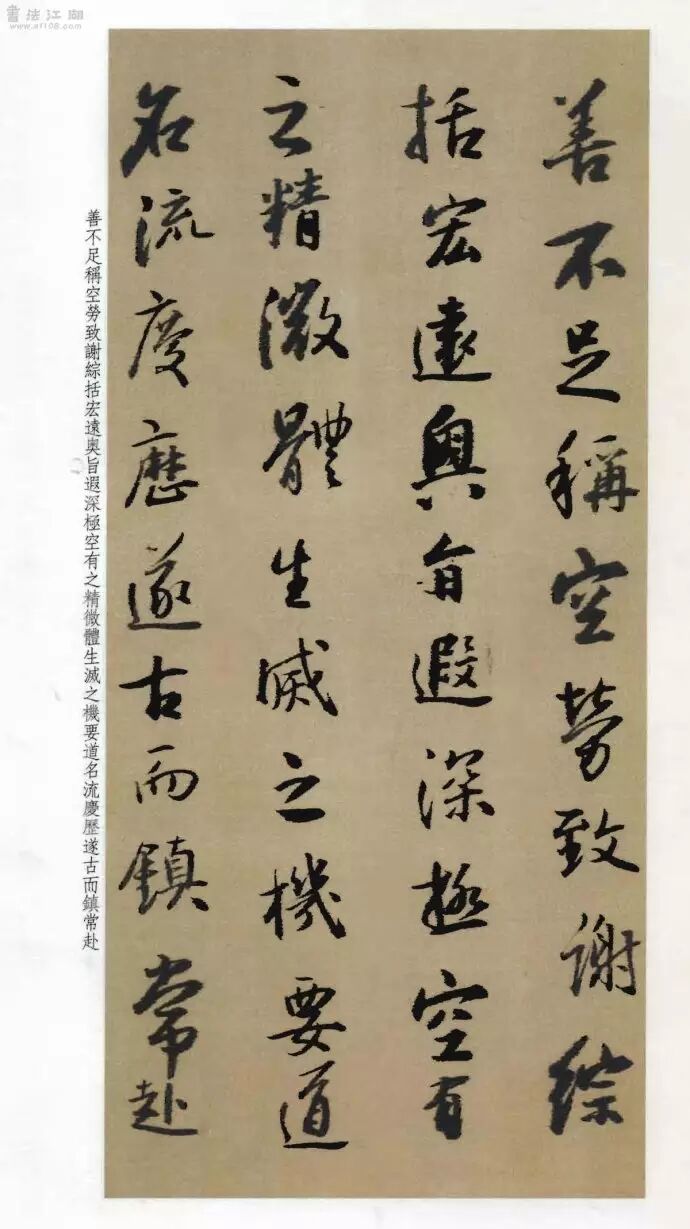 書法江湖
www.sf108.com
善不足稱空勞致謝綜
括宏遠奧旨遐深極空有
之精微體生滅之機要道
名流慶歷遂古而鎮常赴
善不足稱空勞致謝綜括宏遠奧旨遐深極空有之精微體生滅之機要道名流慶歷遂古而鎮常赴